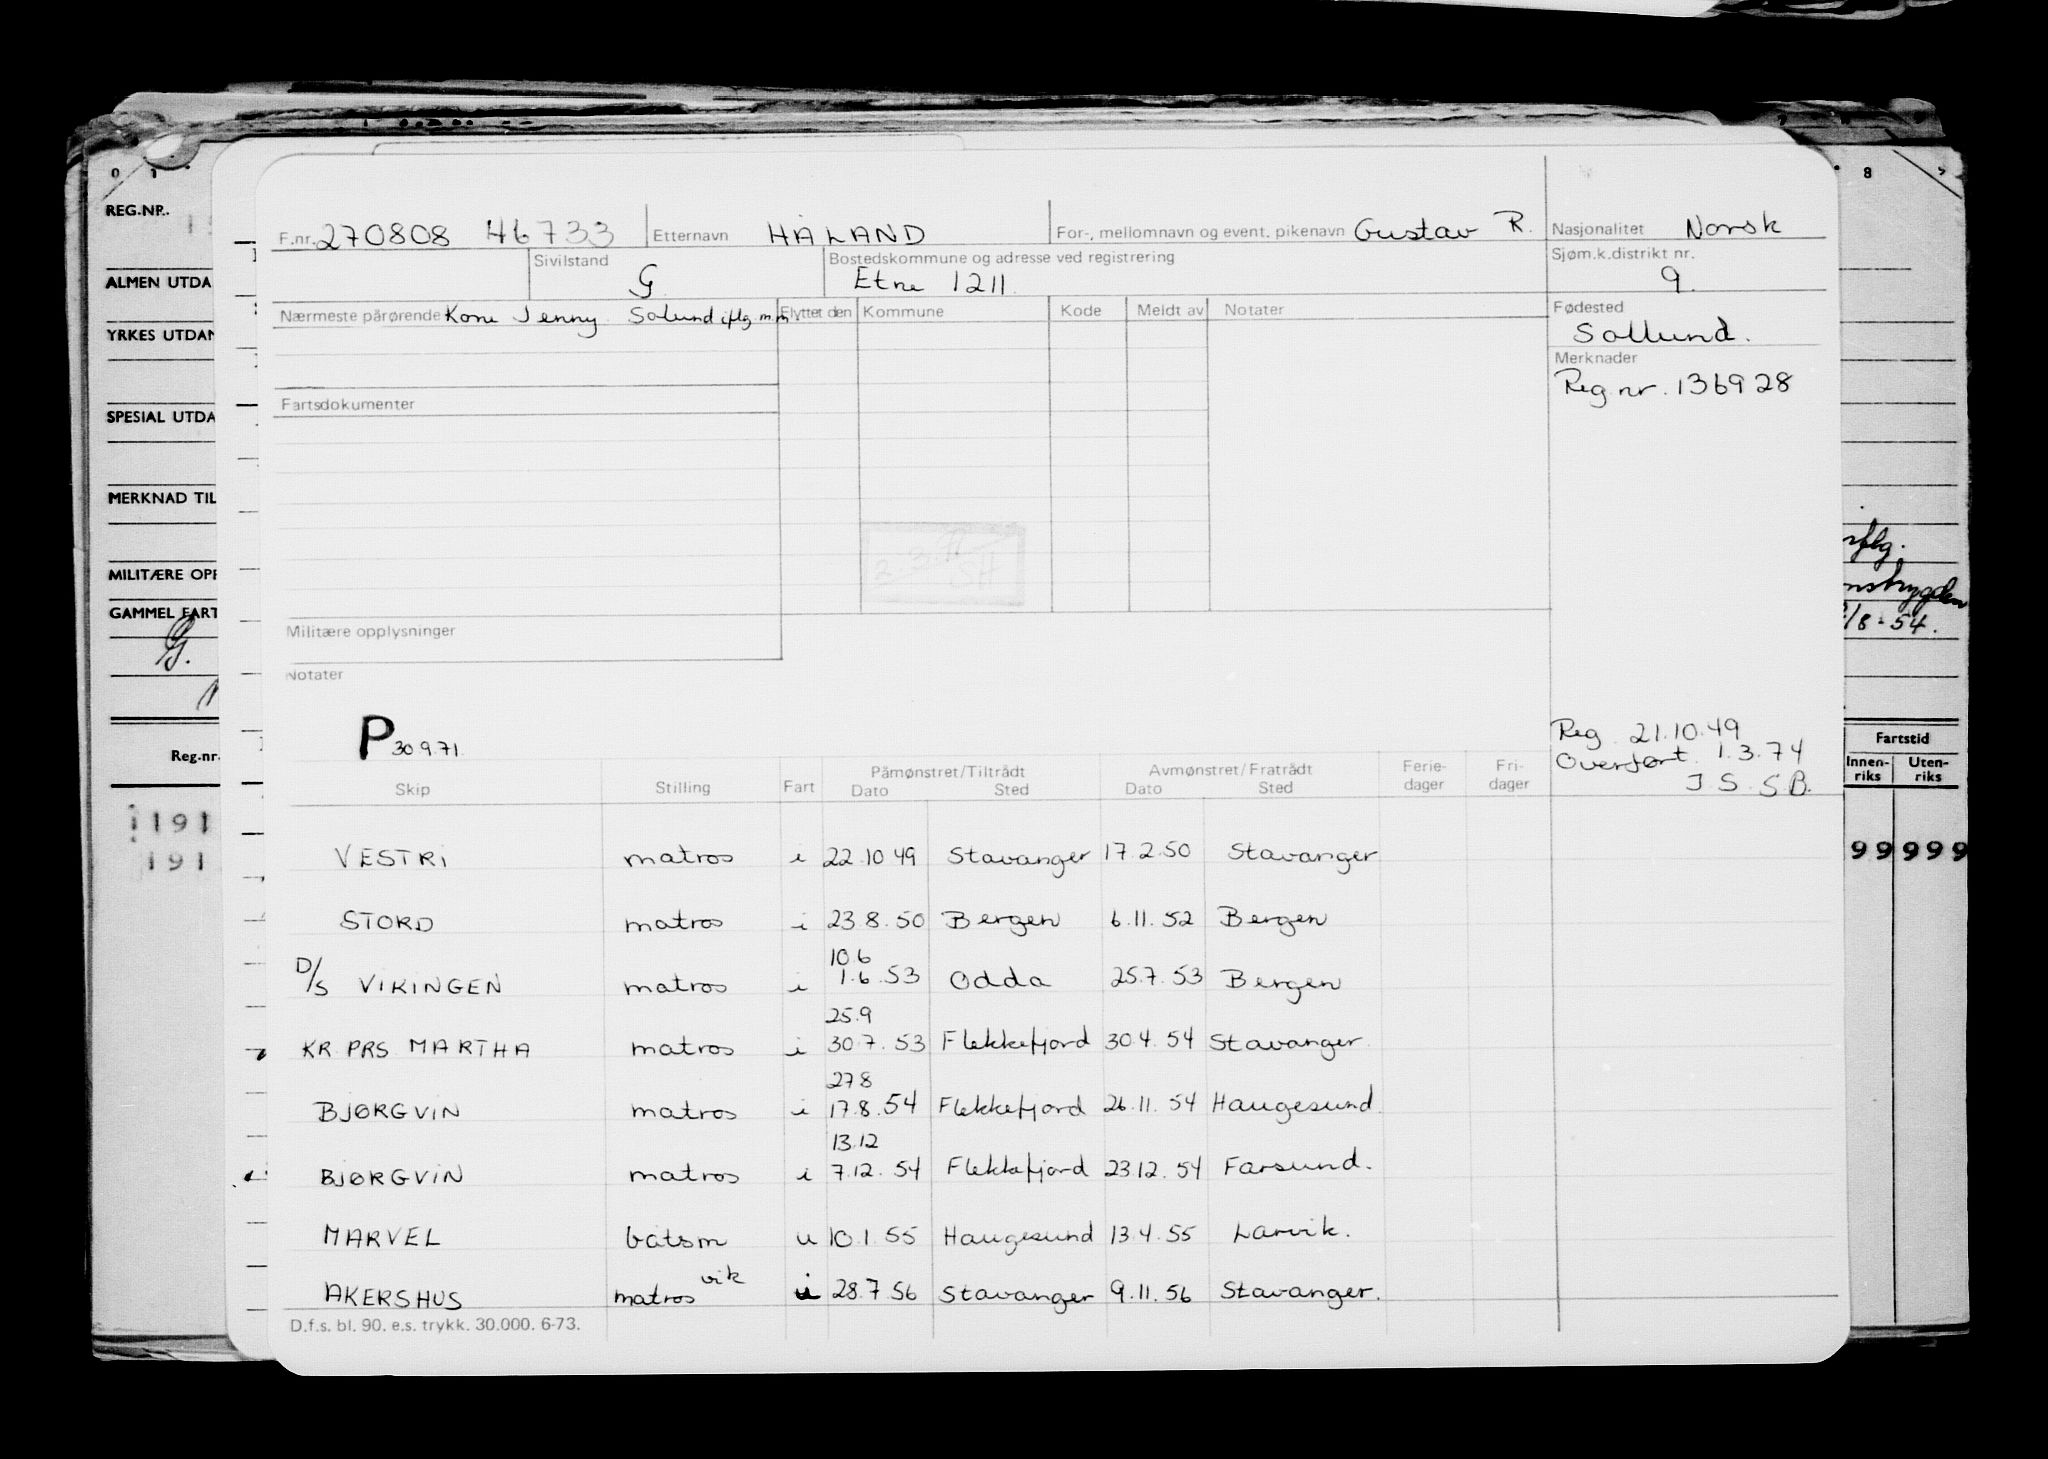 REG.NR.
ALMEN UTDA
YRKES UTDAN
SPESIAL UTDA
MERKNAD TIL
MILITÆRE OPP
GAMMEL FART
G.
Reg.nr.
191
191
F.nr. 270808 46733 Etternavn HÅLAND For-, mellomnavn og event. pikenavn Gustav R. Nasjonalitet Norsk
Sivilstand G Bostedskommune og adresse ved registrering Etne 1211 Sjøm.k.distrikt nr. 9.
Nærmeste pårørende Kone Jenny Solund iflg. m.m. Flyttet den Kommune Kode Meldt av Notater Fødested
Sollund.
Merknader
Reg nr. 136928
Fartsdokumenter
Militære opplysninger
Notater
P 30 9.71.
Reg. 21.10.49
Overført. 1.3.74
J.S.S.B.
Skip Stilling Fart Påmønstret/Tiltrådt Dato Sted Avmønstret/Fratrådt Dato Sted Ferie-dager Fri-dager
VESTRI matros i 22 10 49 Stavanger 17 2.50 Stavanger
STORD matros i 23.8.50 Bergen 6.11.52 Bergen
10.6
D/S VIKINGEN matros i 1.6.53 Odda 25.7.53 Bergen
25.9
KR PRS MARTHA matros i 30.7.53 Flekkefjord 30.4.54 Stavanger.
27 8
BJØRGVIN matros i 17.8.54 Flekkefjord 26.11.54 Haugesund
13.12
BJØRGVIN matros i 7.12.54 Flekkefjord 23 12.54 Farsund.
MARVEL båtsm u 10.1.55 Haugesund 13.4.55 Larvik.
AKERSHUS matros vik i 28.7 56 Stavanger 9.11.56 Stavanger.
D.f.s. bl. 90. e.s. trykk. 30.000. 6-73.
8
/8-54.
Fartstid
Innen-riks Uten-riks
99 999